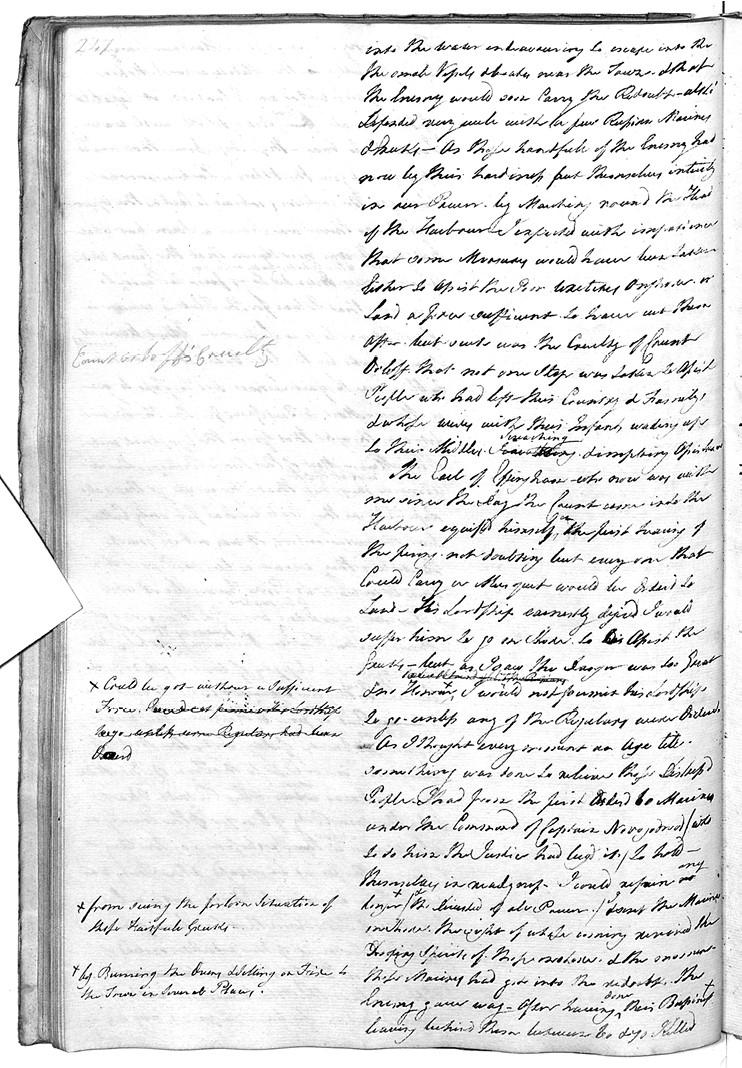 247
into the water endeavouring to escape into the
the small Vessels & boats near the Town & that
the Enemy would soon Carry the Redoubt - altho'
defended very well with a few Russian Marines
& Greeks - As these handfull of the Enemy had
now by their hardiness put themselves intirely
in our Power by Marching round the Head
of the Harbour I expected with impatience
that some Measures would have been taken
Either to Assist the Poor Wretches on shore or
Land a force sufficient to have cut them
off - but such was the Cruelty of Count
Orloff that not one Step was taken to Assist
People who had left their Country & Familys
& whose wives with their Infants wading up
to their Middles Screaching & imploring Assistance
The Earl of Effingham who now was with
me since the day the Count came into the
Harbour equip'd himself on the first hearing of
the firing not doubting but every one that
Could Carry a Musquet would be Orderd to
Land - His Lordship earnestly desired I would
suffer him to go on Shore to Assist the
Greeks - but as I saw the danger was too Great
for Honour + I would not permit his Lordship
to go unless any of the Regulars were Orderd
As I thought every moment an Age till
something was done to relieve these Distress'd
People I had from the first Orderd 60 Marines
under the Command of Captain Novogodnod (who
to do him the Justice had beg'd it) to hold
themselves in readyness I could refrain no any
longer + (tho' Divested of all Power) I sent the Marines
on shore the sight of whose coming revived the
Drooping Spirits of those on shore & the moment
these Marines had got into the redoubt the
Enemy gave way - After having done their Business +
leaving behind them between 60 & 70 Killed
Count Orloff's Cruelty
+ Could be got without a Sufficient
Force
+ from seeing the forlorn Situation of
these Faithfull Greeks
+ by Burning the Quay & Setting on Fire to
the Town in several Places